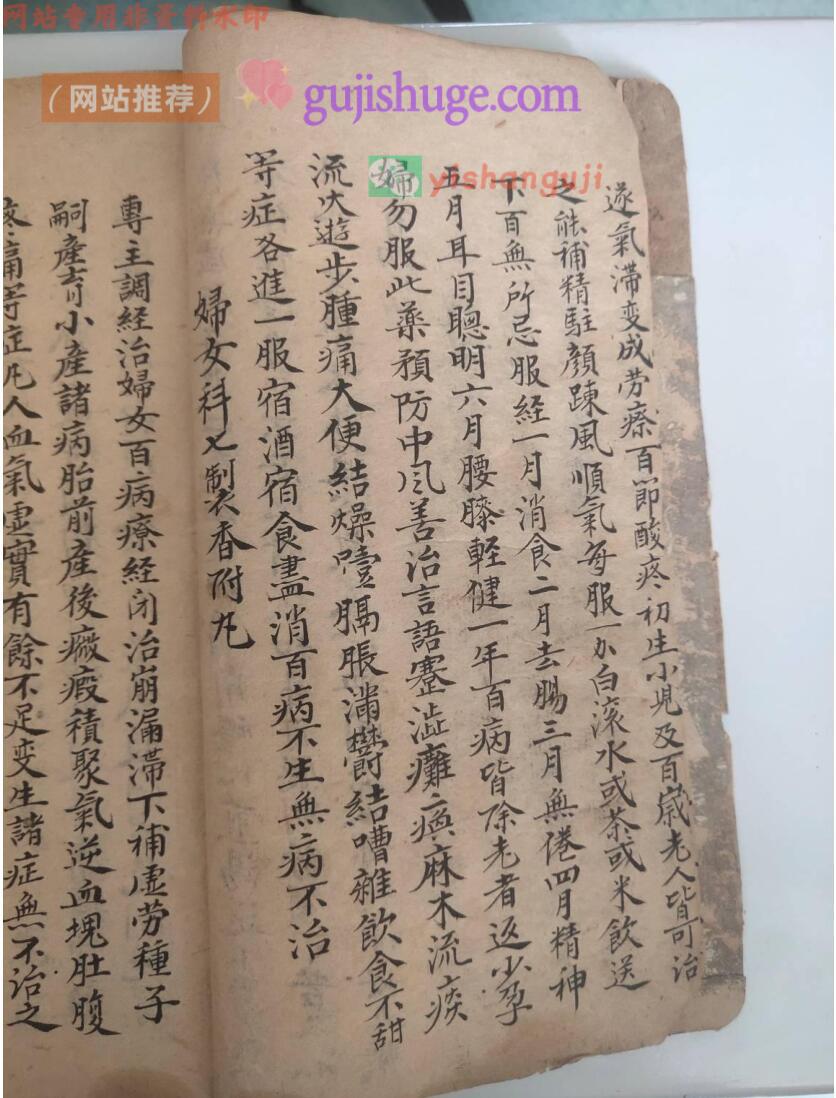 网站专用非资料水印
（网站推荐）
gujishuge.com
yishanguji
遂氣滞变成劳瘵百節酸疼初生小児及百嵗老人皆可治
之能補精駐顔踈風順氣每服一分白滚水或茶或米飲送
下百無所忌服経一月消食二月去腸三月無倦四月精神
五月耳目聰明六月腰膝軽健一年百病皆除老者返少孕
婦勿服此藥預防中风善治言語蹇澁癱瘓麻木流痰
流火遊步腫痛大便結燥噎膈脹满欝結嘈雜飲食不甜
等症各進一服宿酒宿食盡消百病不生無病不治
婦女科七製香附丸
專主調経治婦女百病療経闭治崩漏滞下補虚劳種子
嗣產育小產諸病胎前產後癥瘕積聚氣逆血塊肚腹
疼痛等症凡人血氣虚實有餘不足变生諸症無不治之